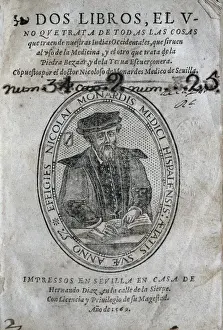 DOS LIBROS, EL V
NO QVE TRATA DE TODAS LAS COSAS
que traen de nuestras Indias Occidentales, que siruen
al vso de la Medicina, y el otro que trata de la
Piedra Bezaar, y de la Yerua Escuerçonera.
Cōpuestos por el doctor Nicoloso de Monardes Medico de Seuilla.
num. 34 num. 25
EFFIGIES NICOLAI MONARDIS MEDICI HISPALENSIS AETATIS SVAE ANNO 57
IMPRESSOS EN SEVILLA EN CASA DE
Hernando Diaz, en la calle de la Sierpe.
Con Licencia y Priuilegio de su Magestad.
Año de 1569.
2